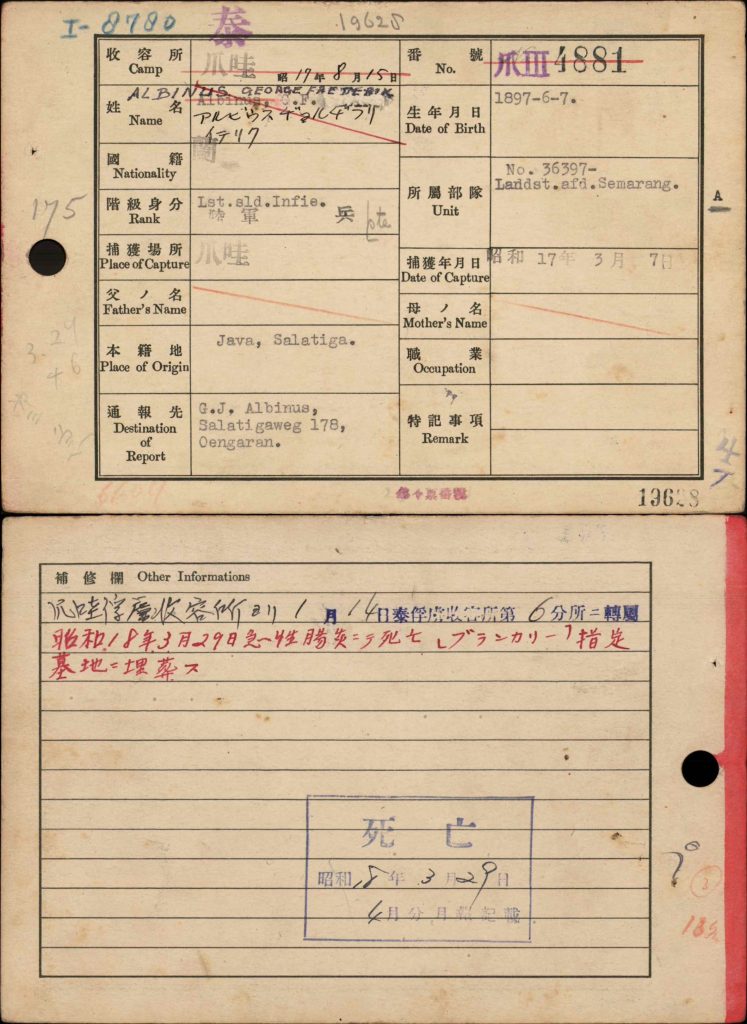 I-8780
泰
19628
收容所
Camp
爪哇
昭17年8月15日
番號
No.
爪III 4881
ALBINUS GEORGE FREDERIK
姓名
Name
Albinus, G.F.
アルビヌスヂョルヂフラ
イデリク
生年月日
Date of Birth
1897-6-7.
國籍
Nationality
蘭
所屬部隊
Unit
No. 36397-
Landst.afd.Semarang.
A
175
階級身分
Rank
Lst.sld.Infie.
陸軍 兵
pte
捕獲場所
Place of Capture
爪哇
捕獲年月日
Date of Capture
昭和 17年 3月 7日
父ノ名
Father's Name
母ノ名
Mother's Name
本籍地
Place of Origin
Java, Salatiga.
職業
Occupation
通報先
Destination
of
Report
G.J. Albinus,
Salatigaweg 178,
Oengaran.
特記事項
Remark
19628
補修欄 Other Informations
爪哇俘虜收容所ヨリ1月14日泰俘虜收容所第6分所ニ轉屬
昭和18年3月29日急性腸炎ニテ死亡「ブランカリー」指定
墓地ニ埋葬ス
死亡
昭和18年3月29日
4月分月報記載